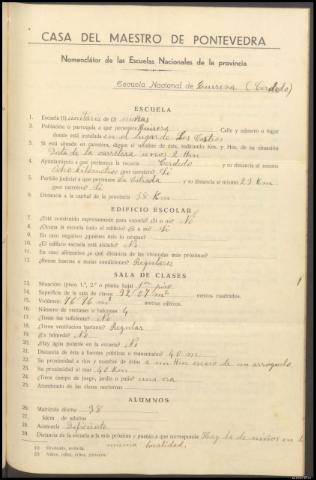 CASA DEL MAESTRO DE PONTEVEDRA
Nomenclátor de las Escuelas Nacionales de la provincia
Escuela Nacional de Quireza (Cerdedo)
ESCUELA
1. Escuela (1) unitaria de (2) niñas
2. Población o parroquia a que pertenece Quireza Calle y número o lugar
donde está instalada en el lugar de
3. Si está situada en carretera, dígase el nombre de ésta, indicando Km. y Hm. de su situación
Dista de la carretera unos 2 Hm
4. Ayuntamiento a que pertenece la escuela Cerdedo y su distancia al mismo
kilómetros (por carretera) Sí
5. Partido judicial a que pertenece La Estrada y su distancia al mismo 23 Km
(por carretera) Sí
6. Distancia a la capital de la provincia 38 Km
EDIFICIO ESCOLAR
7. ¿Está construido expresamente para escuela? (Sí o no) No
8. ¿Ocupa la escuela todo el edificio? (Sí o no) Sí
9. En caso negativo ¿quiénes más lo ocupan?
10. ¿El edificio escuela está aislado? No
11. En caso afirmativo ¿a qué distancia de las viviendas más próximas?
12. ¿Reúne buenas o malas condiciones? Regulares
SALA DE CLASES
13. Situación (piso 1.º, 2.º o planta baja) 1er piso
14. Superficie de la sala de clases 32'07 m² metros cuadrados.
15. Volumen 76'76 m³ metros cúbicos.
16. Número de ventanas o balcones 4
17. ¿Tienen luz suficiente? No
18. ¿Tiene ventilación bastante? Regular
19. ¿Es húmeda? No
20. ¿Hay agua potable en la escuela? No
21. Distancia de ésta a fuentes públicas o manantiales? 40 m
22. Su proximidad a ríos y nombre de éstos a un Hm de un arroyuelo
23. Su proximidad al mar 40 Km
24. ¿Tiene campo de juego, jardín o patio? una era
25. Alumbrado de las clases nocturnas
ALUMNOS
26. Matrícula diurna 38
27. Idem de adultos
28. Asistencia Deficiente
29. Distancia de la escuela a la más próxima y pueblo a que corresponde Hay la de niños en la
misma localidad.
(1) Graduada, unitaria.
(2) Niños, niñas, mixta, párvulos.